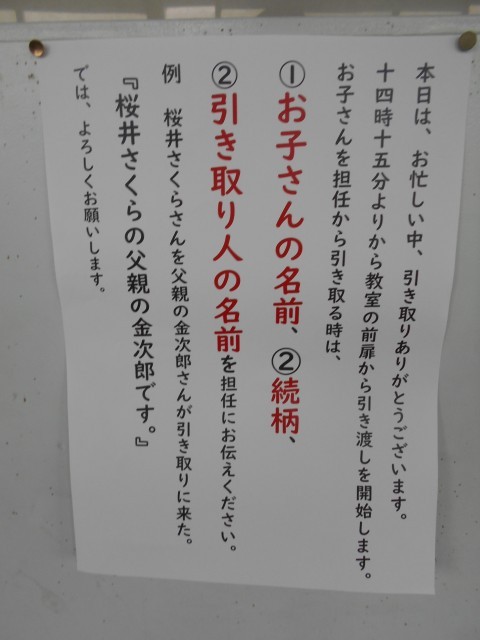 本日は、お忙しい中、引き取りありがとうございます。
十四時十五分よりから教室の前扉から引き渡しを開始します。
お子さんを担任から引き取る時は、
①お子さんの名前、②続柄、
②引き取り人の名前を担任にお伝えください。
例　桜井さくらさんを父親の金次郎さんが引き取りに来た。
『桜井さくらの父親の金次郎です。』
では、よろしくお願いします。